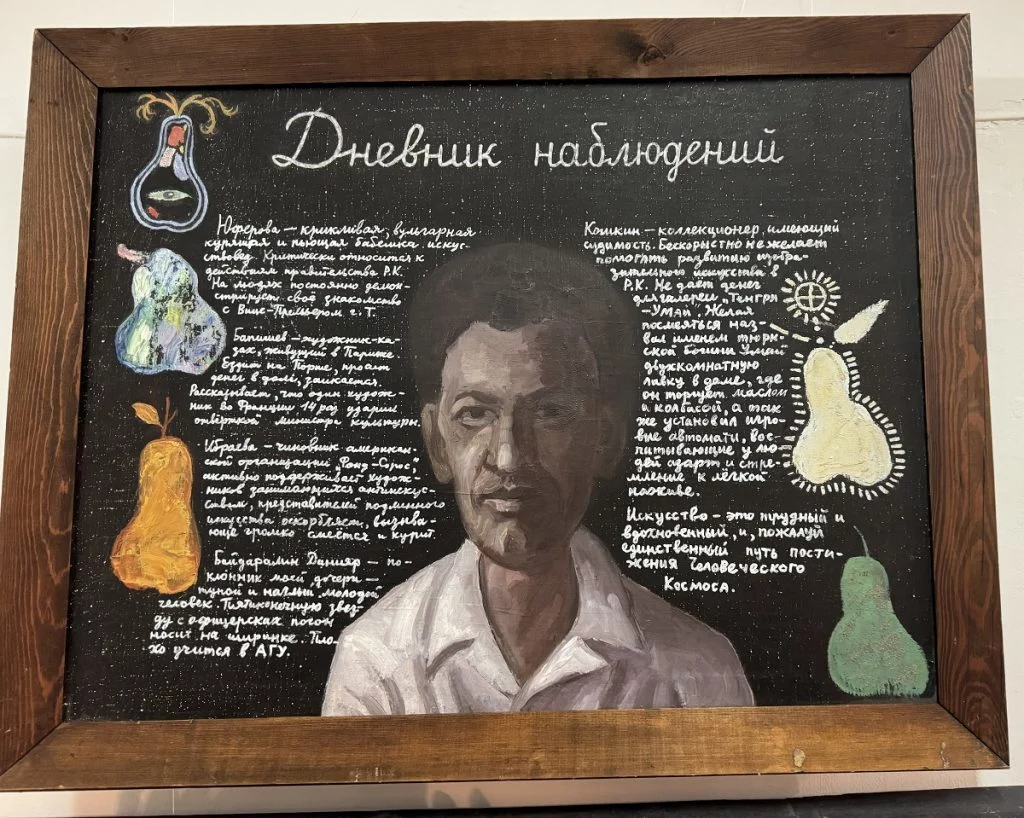 Дневник наблюдений
Юферова – крикливая, вульгарная
курящая и пьющая бабёшка, искус-
ствовед. Критически относится к
действиям правительства Р.К.
На людях постоянно демон-
стрирует своё знакомство
с Вице-Премьером г. Т.
Бапишев – художник-ка-
зах, живущий в Париже.
Ездит на Порше, просит
денег в долг, заикается.
Рассказывает, что один худож-
ник во Франции 14 раз ударил
отвёрткой министра культуры.
Ибраева – чиновник американ-
ской организации „Фонд-Сорос",
активно поддерживает худож-
ников занимающихся антиискус-
ством, представителей подлинного
искусства оскорбляет, вызыва-
юще громко смеётся и курит.
Байдаралин Данияр – по-
клонник моей дочери –
тупой и наглый молодой
человек. Пятиконечную звез-
ду с офицерских погон
носит на ширинке. Пло-
хо учится в АГУ.
Кошкин – коллекционер, имеющий
судимость. Бескорыстно не желает
помогать развитию изобра-
зительного искусства в
Р.К. Не даёт денег
для галереи „Тенгри
–УМАЙ". Желая
посмеяться наз-
вал именем тюрк-
ской богини Умай
двухкомнатную
лавку в доме, где
он торгует маслом
и колбасой, а так
же установил игро-
вые автоматы, вос-
питывающие у лю-
дей азарт и стре-
мление к лёгкой
наживе.
Искусство – это трудный и
вдохновенный, и, пожалуй
единственный путь пости-
жения Человеческого
Космоса.